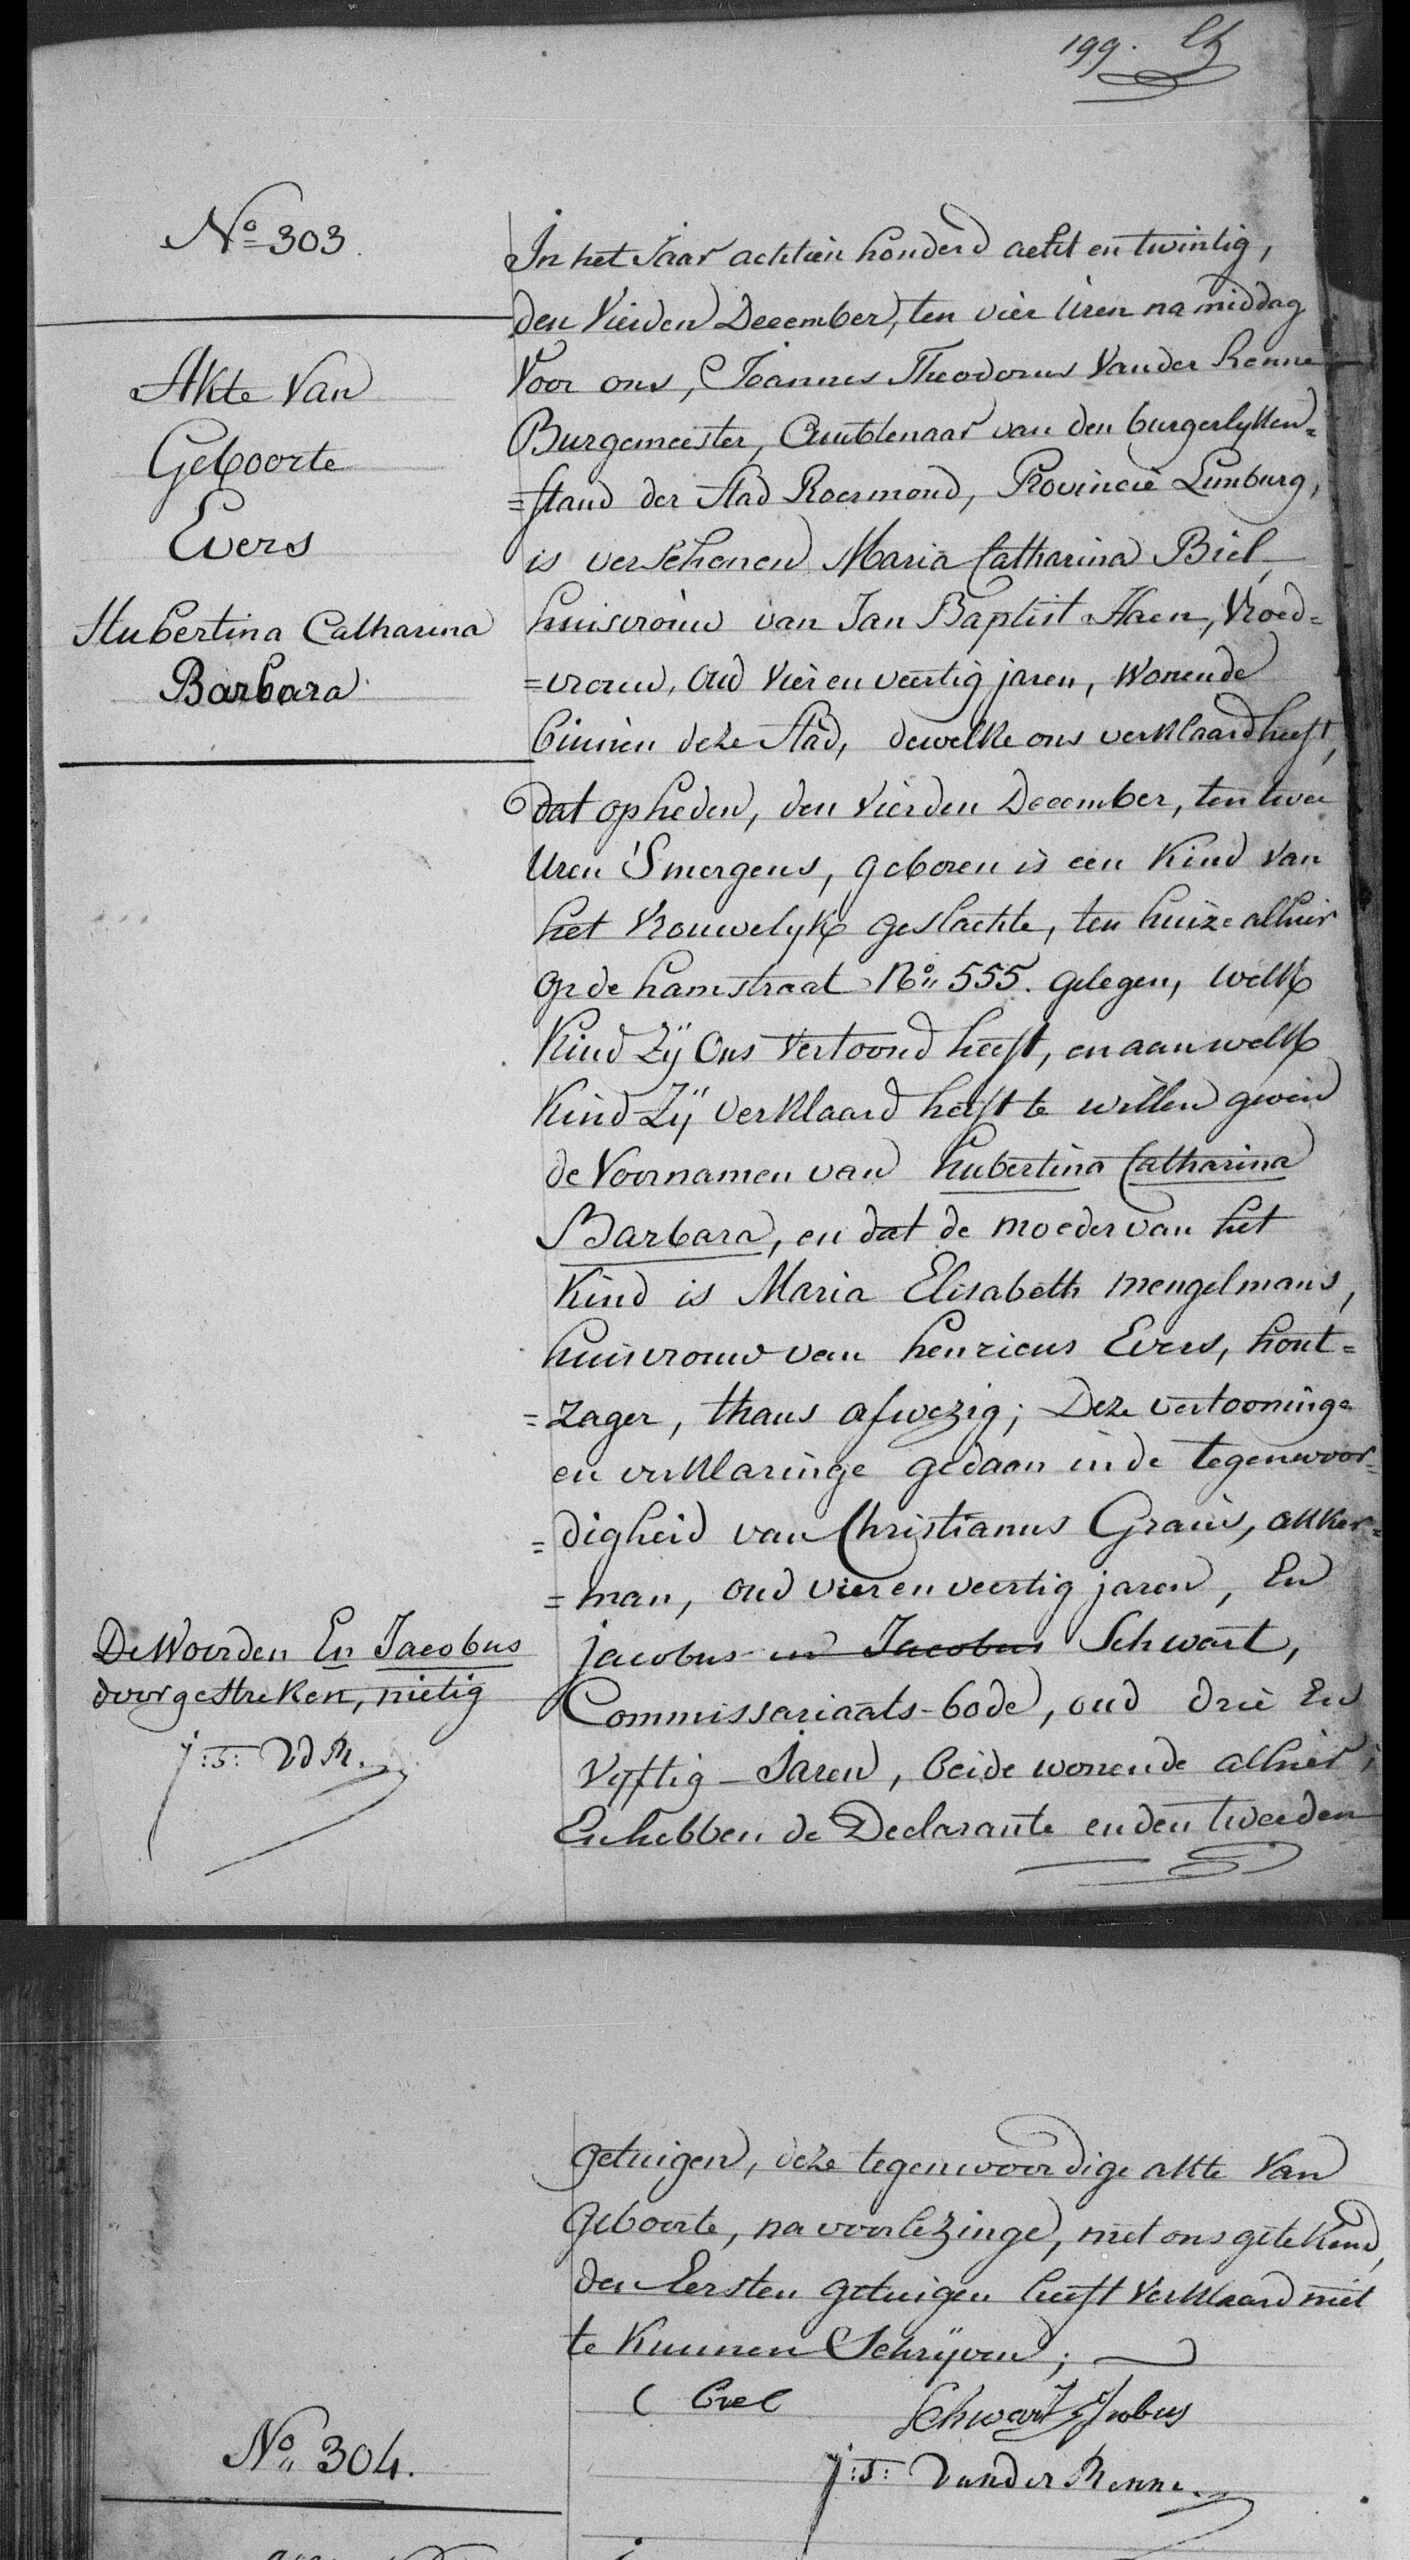 199.
No 303.
Akte Van
Geboorte
Evers
Hubertina Catharina
Barbara
In het Jaar achtien honderd acht en twintig,
den Vierden December, ten vier Uren namiddag
Voor ons, Joannes Theodorus Vander Renne
Burgemeester, Ambtenaar van den burgerlyken=
=stand der Stad Roermond, Provincie Limburg,
is verschenen Maria Catharina Biel,
huisvrouw van Jan Baptist Haen, Vroed=
=vrouw, Oud Vier en veertig jaren, Wonende
binnen deze Stad, dewelke ons verklaard heeft,
dat op heden, den Vierden December, ten twee
Uren 'Smorgens, geboren is een Kind van
het Vrouwelyk geslachte, ten huize alhier
op de hamstraat No 555. gelegen, welk
Kind Zÿ Ons Vertoond heeft, en aan welk
Kind Zÿ verklaard heeft te willen geven
de Voornamen van Hubertina Catharina
Barbara, en dat de moeder van het
Kind is Maria Elisabeth mengelmans,
huisvrouw van henricus Evers, hout=
=zager, thans afwezig; Deze vertooninge
en verklaringe gedaan in de tegenwoor=
=digheid van Christianus Graus, akker=
=man, oud vier en veertig jaren, En
jacobus en Jacobus Schwart,
Commissariaats-bode, oud drie En
Vyftig Jaren, beide wonende alhier;
En hebben de Declarante en den tweeden
De Woorden En Jacobus
doorgestreken, nietig
j:t: VdR.
getuigen, deze tegenwoordige akte Van
Geboorte, na voorlezinge, met ons getekend,
den Eersten getuigen heeft Verklaard niet
te Kunnen Schrÿven;
Schwart Jacobus
j:t: Vander Renne.
No 304.